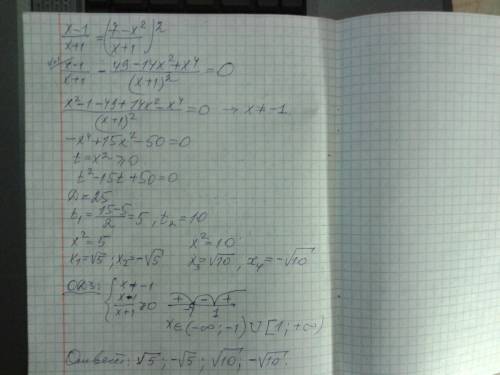 (x-1)/(x+1) = ((7-x²)/(x+1))²
(x-1)/(x+1) - (49-14x²+x⁴)/(x+1)² = 0
(x²-1-49+14x²-x⁴)/(x+1)² = 0 → x≠-1
-x⁴+15x²-50=0
t=x²≥0
t²-15t+50=0
D=25
t₁=(15-5)/2=5; t₂=10
x²=5 x²=10
x₁=√5; x₂=-√5 x₃=√10, x₄=-√10
ОДЗ: { x≠-1
(x-1)/(x+1) ≥0 + - + -1 1
x∈(-∞;-1)∪[1;+∞)
Ответ: √5; -√5; √10; -√10.